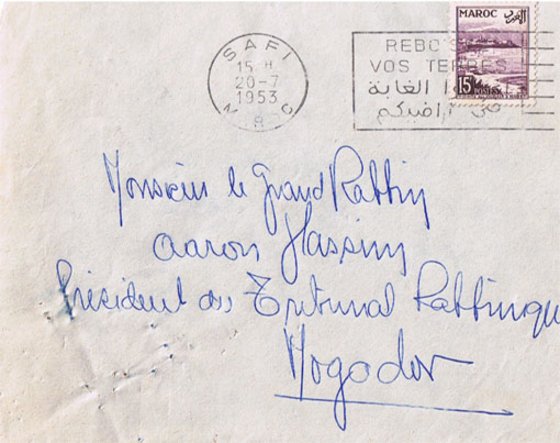 SAFI
15 H
20-7
1953
MAROC
المغرب
REBOISE
VOS TERRES
الغابة
في أراضيكم
15
POSTES
Monsieur le Grand Rabbin
Aaron Hassin
Président du Tribunal Rabbinique
Mogador